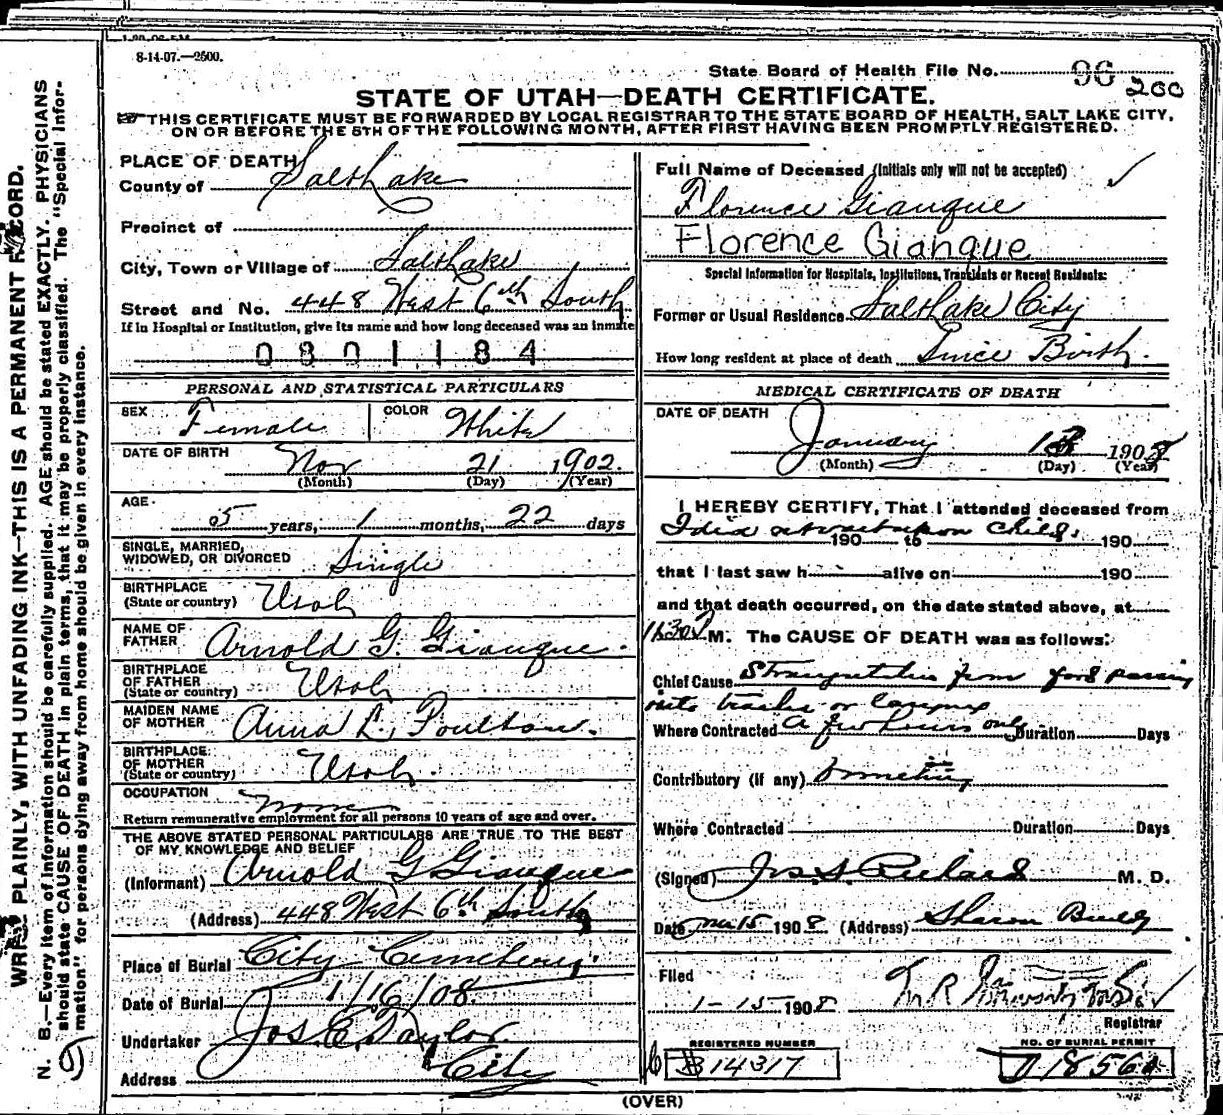 8-14-07.—2500.
State Board of Health File No. 96 200
STATE OF UTAH—DEATH CERTIFICATE.
THIS CERTIFICATE MUST BE FORWARDED BY LOCAL REGISTRAR TO THE STATE BOARD OF HEALTH, SALT LAKE CITY,
ON OR BEFORE THE 5TH OF THE FOLLOWING MONTH, AFTER FIRST HAVING BEEN PROMPTLY REGISTERED.
PLACE OF DEATH
County of Salt Lake
Precinct of
City, Town or Village of Salt Lake
Street and No. 448 West 6th South
If in Hospital or Institution, give its name and how long deceased was an inmate
0801184
PERSONAL AND STATISTICAL PARTICULARS
SEX Female COLOR White
DATE OF BIRTH Nov 21 1902.
(Month) (Day) (Year)
AGE
5 years, 1 months, 22 days
SINGLE, MARRIED,
WIDOWED, OR DIVORCED Single
BIRTHPLACE
(State or country) Utah
NAME OF
FATHER Arnold G. Giauque.
BIRTHPLACE
OF FATHER
(State or country) Utah
MAIDEN NAME
OF MOTHER Anna L. Poulton.
BIRTHPLACE
OF MOTHER
(State or country) Utah.
OCCUPATION None
Return remunerative employment for all persons 10 years of age and over.
THE ABOVE STATED PERSONAL PARTICULARS ARE TRUE TO THE BEST
OF MY KNOWLEDGE AND BELIEF
(Informant) Arnold G Giauque
(Address) 448 West 6th South
Place of Burial City Cemetery.
Date of Burial 1/16/08
Undertaker Jos E Taylor
Address City
Full Name of Deceased (Initials only will not be accepted)
Florence Giauque
Florence Gianque
Special Information for Hospitals, Institutions, Transients or Recent Residents:
Former or Usual Residence Salt Lake City
How long resident at place of death Since Birth.
MEDICAL CERTIFICATE OF DEATH
DATE OF DEATH
January 13 1908
(Month) (Day) (Year)
I HEREBY CERTIFY, That I attended deceased from
I did not child.
190 to 190
that I last saw h alive on 190
and that death occurred, on the date stated above, at
M. The CAUSE OF DEATH was as follows:
Chief Cause Strangulation from food passing
into trachea or larynx
Where Contracted A few hours only Duration Days
Contributory (if any) Vomiting
Where Contracted Duration Days
(Signed) Jos. S. Richards M. D.
Date Jan 15 1908 (Address) Sharon Bldg
Filed
1-15-1908
Registrar
REGISTERED NUMBER
B14317
NO. OF BURIAL PERMIT
D 1856
(OVER)
WRITE PLAINLY, WITH UNFADING INK—THIS IS A PERMANENT RECORD.
N. B.—Every item of information should be carefully supplied. AGE should be stated EXACTLY. PHYSICIANS
should state CAUSE OF DEATH in plain terms, that it may be properly classified. The "Special Infor-
mation" for persons dying away from home should be given in every instance.